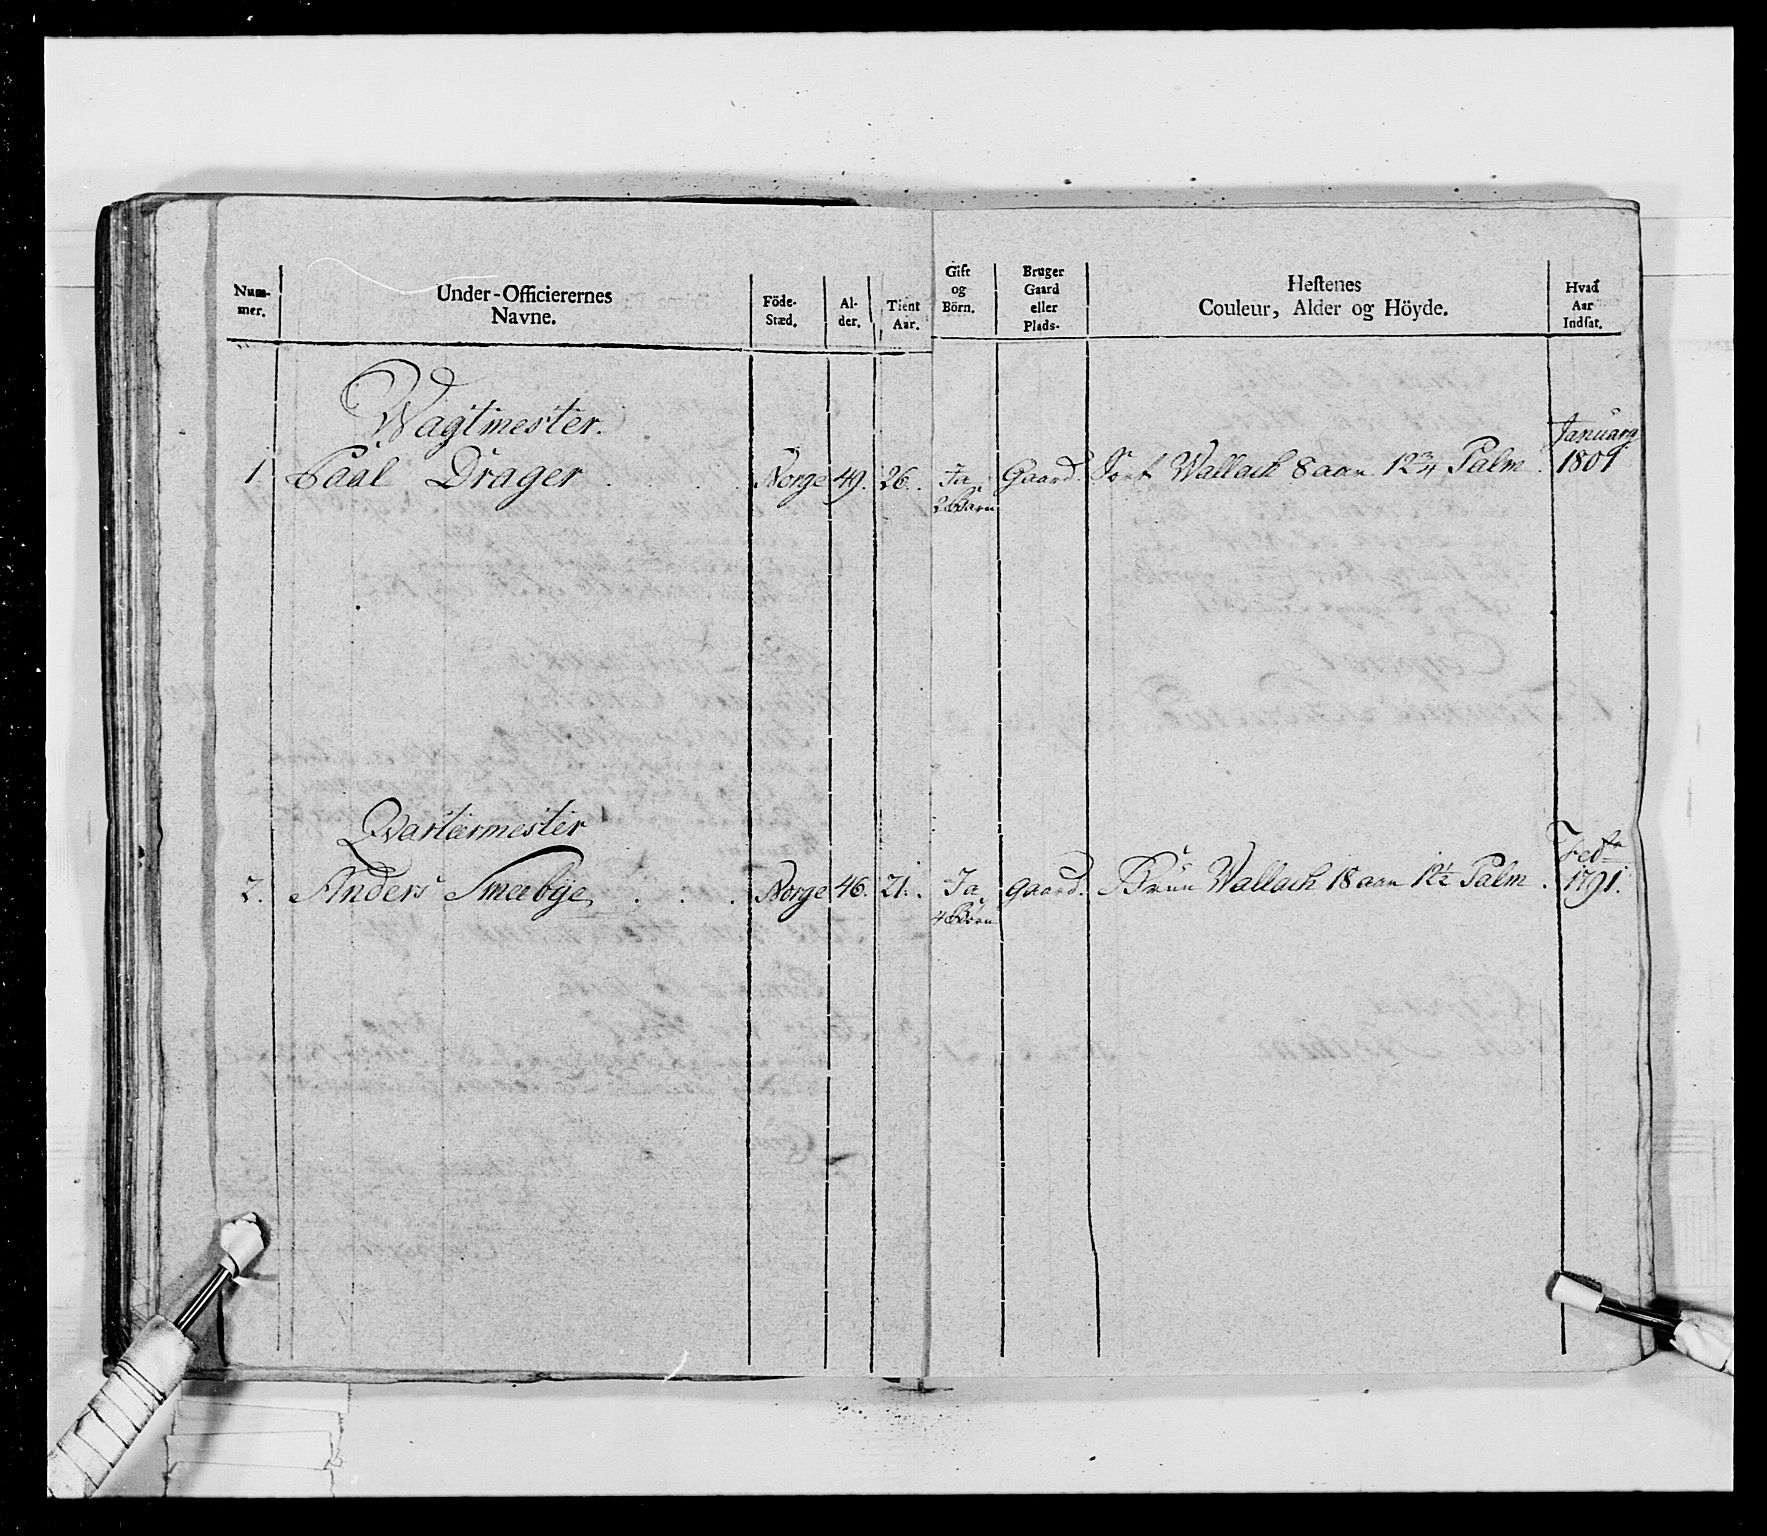 Num-
mer.
Under-Officierernes
Navne.
Föde-
Stæd.
Al-
der.
Tient
Aar.
Gift
og
Börn.
Bruger
Gaard
eller
Plads.
Hestenes
Couleur, Alder og Höyde.
Hvad
Aar
Indsat.
Wagtmester.
Januarg
1. Paal Drager . . . Norge 49. 26. Ja Gaard. Sort Wallach 8 aar 12 3/4 Palm . 1801
2 Barn
Qvarteermester
Feb
2. Anders Smeebye . . . Norge 46. 21. Ja gaard. Brun Wallach 18 aar 12 1/2 Palm . 1791.
4 Börn